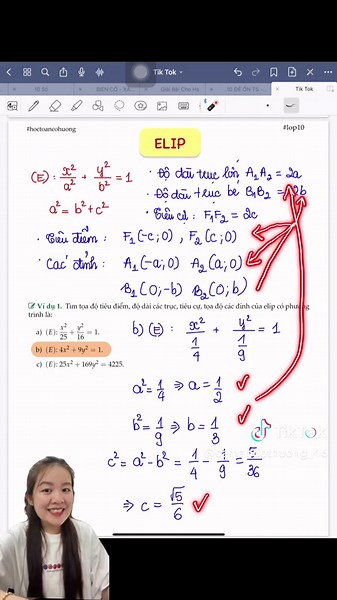 Tik Tok
Tik Tok
#hoctoancohuong
#lop10
ELIP
(E): x²/a² + y²/b² = 1
a² = b² + c²
· Độ dài trục lớn A₁A₂ = 2a
· Độ dài trục bé B₁B₂ = 2b
· Tiêu cự: F₁F₂ = 2c
· Tiêu điểm: F₁(-c; 0), F₂(c; 0)
· Các đỉnh: A₁(-a; 0) A₂(a; 0)
B₁(0; -b) B₂(0; b)
Ví dụ 1. Tìm tọa độ tiêu điểm, độ dài các trục, tiêu cự, tọa độ các đỉnh của elip có phương
trình là:
a) (E): x²/25 + y²/16 = 1.
b) (E): 4x² + 9y² = 1.
c) (E): 25x² + 169y² = 4225.
b) (E): x²/(1/4) + y²/(1/9) = 1
a² = 1/4 ⇒ a = 1/2
b² = 1/9 ⇒ b = 1/3
c² = a² - b² = 1/4 - 1/9 = 5/36
⇒ c = √5/6
TikTok